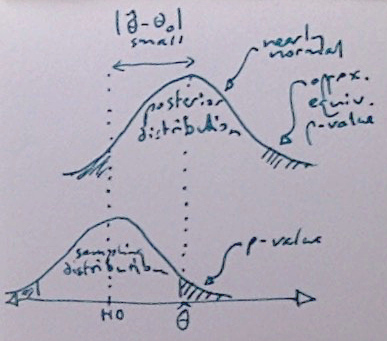 |θ̂-θ₀|
small
nearly
normal
posterior
distribution
appx.
equiv.
p-value
sampling
distribution
p-value
H0
θ̂